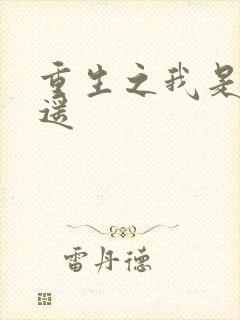 重生之我是
遥
雷丹德